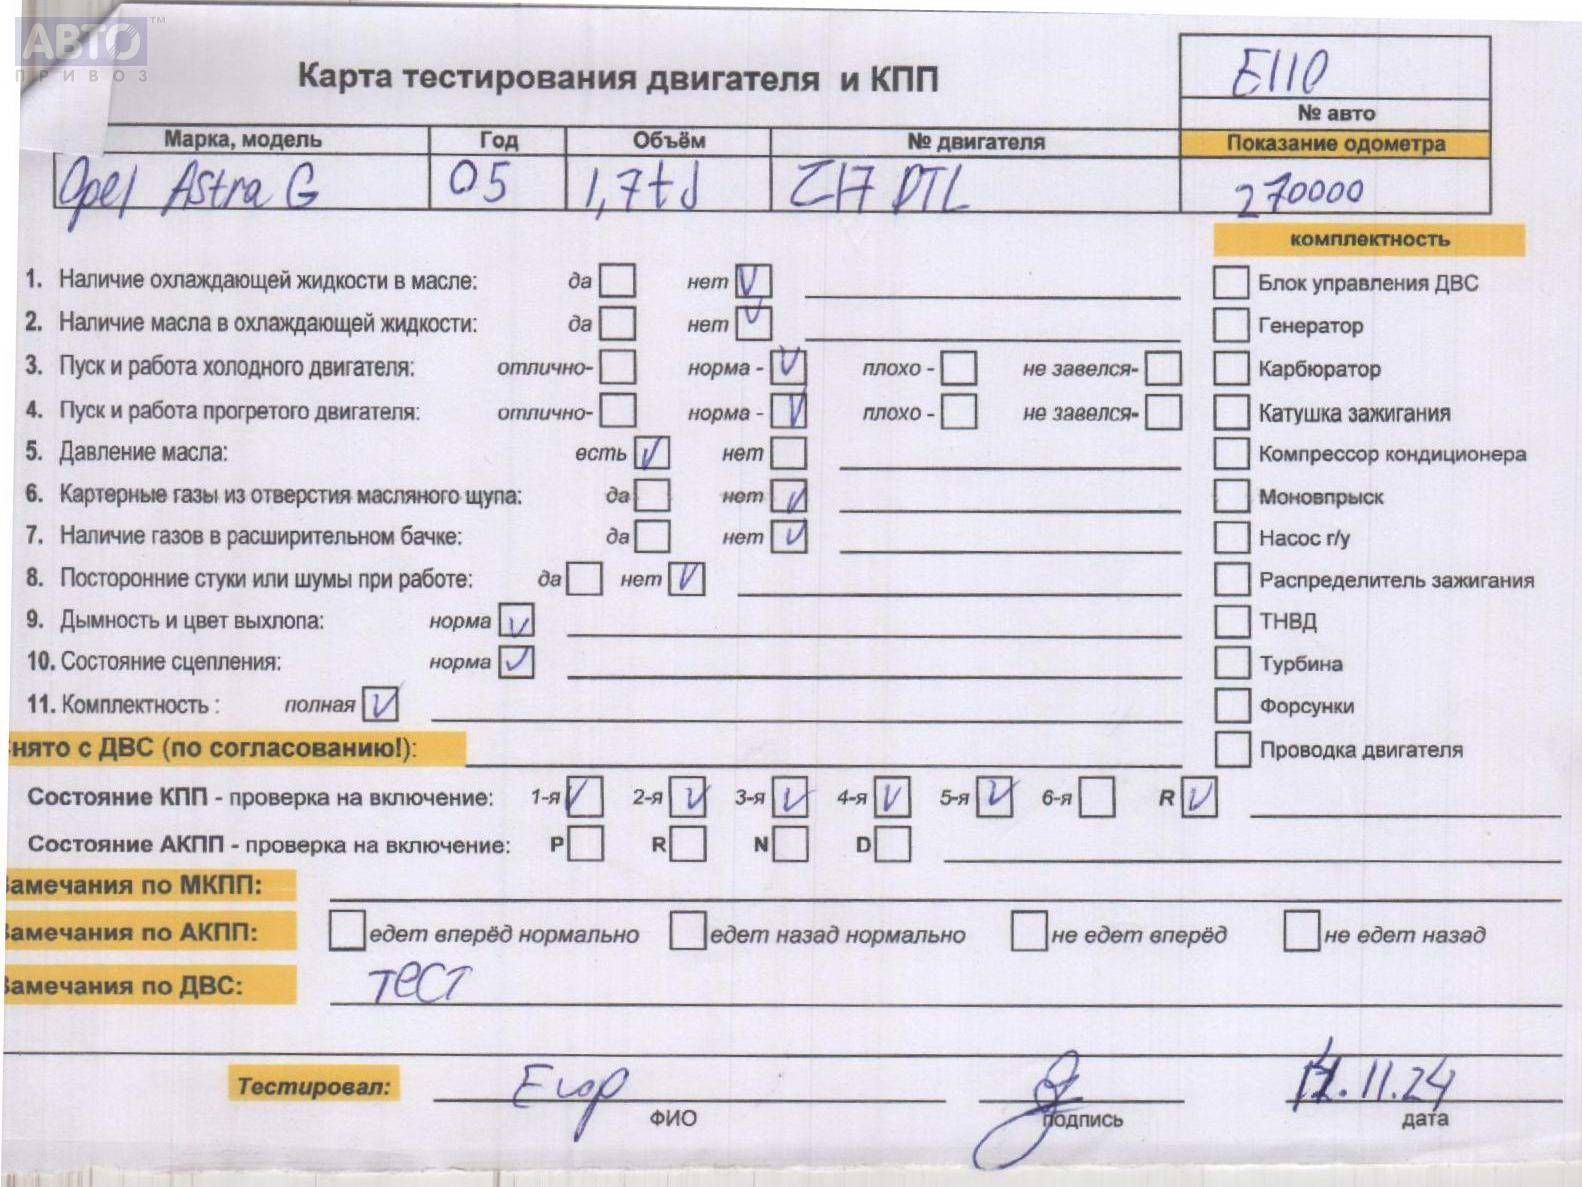 АВТО™
ПРИВОЗ
Карта тестирования двигателя и КПП
E110
№ авто
Марка, модель Год Объём № двигателя Показание одометра
Opel Astra G 05 1,7td Z17 DTL 270000
комплектность
1. Наличие охлаждающей жидкости в масле: да нет V
Блок управления ДВС
2. Наличие масла в охлаждающей жидкости: да нет V
Генератор
3. Пуск и работа холодного двигателя: отлично- норма - V плохо - не завелся-
Карбюратор
4. Пуск и работа прогретого двигателя: отлично- норма - V плохо - не завелся-
Катушка зажигания
5. Давление масла: есть V нет
Компрессор кондиционера
6. Картерные газы из отверстия масляного щупа: да нет V
Моновпрыск
7. Наличие газов в расширительном бачке: да нет V
Насос г/у
8. Посторонние стуки или шумы при работе: да нет V
Распределитель зажигания
9. Дымность и цвет выхлопа: норма V
ТНВД
10. Состояние сцепления: норма V
Турбина
11. Комплектность : полная V
Форсунки
нято с ДВС (по согласованию!):
Проводка двигателя
Состояние КПП - проверка на включение: 1-я V 2-я V 3-я V 4-я V 5-я V 6-я R V
Состояние АКПП - проверка на включение: P R N D
Замечания по МКПП:
Замечания по АКПП: едет вперёд нормально едет назад нормально не едет вперёд не едет назад
Замечания по ДВС: тест
Тестировал: Егор
ФИО подпись дата